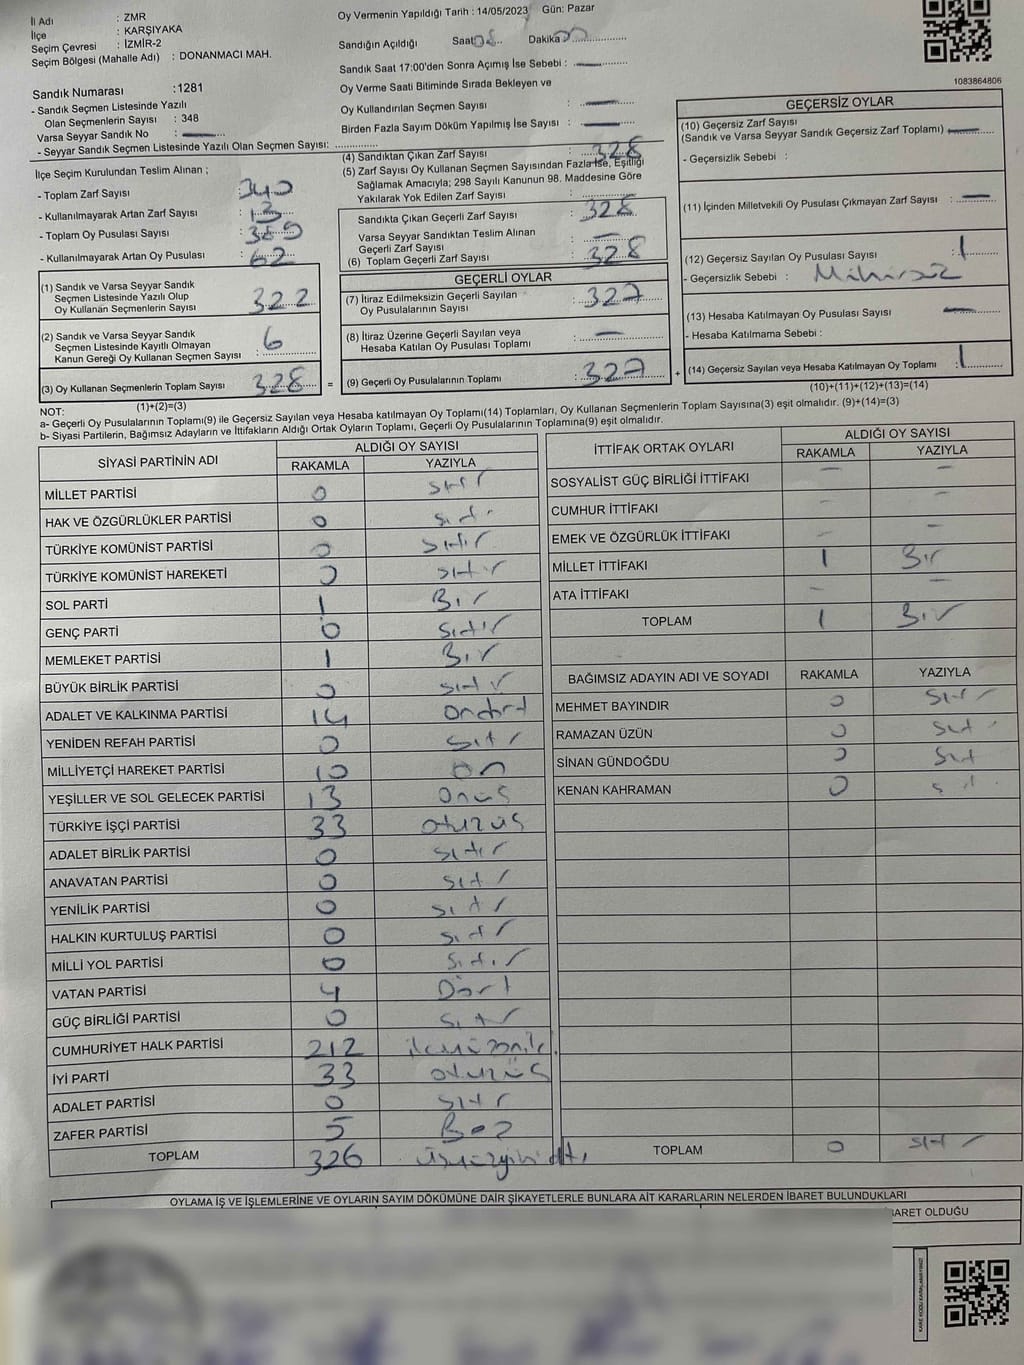 İl Adı : ZMR
İlçe : KARŞIYAKA
Seçim Çevresi : İZMİR-2
Seçim Bölgesi (Mahalle Adı) : DONANMACI MAH.
Sandık Numarası : 1281
- Sandık Seçmen Listesinde Yazılı
Olan Seçmenlerin Sayısı : 348
Varsa Seyyar Sandık No :
- Seyyar Sandık Seçmen Listesinde Yazılı Olan Seçmen Sayısı:
Oy Vermenin Yapıldığı Tarih : 14/05/2023 Gün: Pazar
Sandığın Açıldığı Saat 08 Dakika
Sandık Saat 17:00'den Sonra Açımış İse Sebebi :
Oy Verme Saati Bitiminde Sırada Bekleyen ve
Oy Kullandırılan Seçmen Sayısı :
Birden Fazla Sayım Döküm Yapılmış İse Sayısı :
1083864806
İlçe Seçim Kurulundan Teslim Alınan ;
- Toplam Zarf Sayısı : 340
- Kullanılmayarak Artan Zarf Sayısı : 13
- Toplam Oy Pusulası Sayısı :
- Kullanılmayarak Artan Oy Pusulası : 62
(1) Sandık ve Varsa Seyyar Sandık
Seçmen Listesinde Yazılı Olup
Oy Kullanan Seçmenlerin Sayısı : 322
(2) Sandık ve Varsa Seyyar Sandık
Seçmen Listesinde Kayıtlı Olmayan
Kanun Gereği Oy Kullanan Seçmen Sayısı : 6
(3) Oy Kullanan Seçmenlerin Toplam Sayısı : 328 =
(1)+(2)=(3)
(4) Sandıktan Çıkan Zarf Sayısı : 328
(5) Zarf Sayısı Oy Kullanan Seçmen Sayısından Fazla İse, Eşitliği
Sağlamak Amacıyla; 298 Sayılı Kanunun 98. Maddesine Göre
Yakılarak Yok Edilen Zarf Sayısı :
Sandıkta Çıkan Geçerli Zarf Sayısı : 328
Varsa Seyyar Sandıktan Teslim Alınan
Geçerli Zarf Sayısı :
(6) Toplam Geçerli Zarf Sayısı : 328
GEÇERLİ OYLAR
(7) İtiraz Edilmeksizin Geçerli Sayılan
Oy Pusulalarının Sayısı : 327
(8) İtiraz Üzerine Geçerli Sayılan veya
Hesaba Katılan Oy Pusulası Toplamı :
(9) Geçerli Oy Pusulalarının Toplamı : 327 +
GEÇERSİZ OYLAR
(10) Geçersiz Zarf Sayısı
(Sandık ve Varsa Seyyar Sandık Geçersiz Zarf Toplamı)
- Geçersizlik Sebebi :
(11) İçinden Milletvekili Oy Pusulası Çıkmayan Zarf Sayısı :
(12) Geçersiz Sayılan Oy Pusulası Sayısı : 1
- Geçersizlik Sebebi : Mühürsüz
(13) Hesaba Katılmayan Oy Pusulası Sayısı :
- Hesaba Katılmama Sebebi :
(14) Geçersiz Sayılan veya Hesaba Katılmayan Oy Toplamı : 1
(10)+(11)+(12)+(13)=(14)
NOT:
a- Geçerli Oy Pusulalarının Toplamı(9) ile Geçersiz Sayılan veya Hesaba katılmayan Oy Toplamı(14) Toplamları, Oy Kullanan Seçmenlerin Toplam Sayısına(3) eşit olmalıdır. (9)+(14)=(3)
b- Siyasi Partilerin, Bağımsız Adayların ve İttifakların Aldığı Ortak Oyların Toplamı, Geçerli Oy Pusulalarının Toplamına(9) eşit olmalıdır.
SİYASİ PARTİNİN ADI ALDIĞI OY SAYISI
RAKAMLA YAZIYLA
MİLLET PARTİSİ 0 sıfır
HAK VE ÖZGÜRLÜKLER PARTİSİ 0 sıfır
TÜRKİYE KOMÜNİST PARTİSİ 0 sıfır
TÜRKİYE KOMÜNİST HAREKETİ 0 sıfır
SOL PARTİ 1 Bir
GENÇ PARTİ 0 sıfır
MEMLEKET PARTİSİ 1 Bir
BÜYÜK BİRLİK PARTİSİ 0 sıfır
ADALET VE KALKINMA PARTİSİ 14 ondört
YENİDEN REFAH PARTİSİ 0 sıfır
MİLLİYETÇİ HAREKET PARTİSİ 10 on
YEŞİLLER VE SOL GELECEK PARTİSİ 13 onüç
TÜRKİYE İŞÇİ PARTİSİ 33 otuzüç
ADALET BİRLİK PARTİSİ 0 sıfır
ANAVATAN PARTİSİ 0 sıfır
YENİLİK PARTİSİ 0 sıfır
HALKIN KURTULUŞ PARTİSİ 0 sıfır
MİLLİ YOL PARTİSİ 0 sıfır
VATAN PARTİSİ 4 Dört
GÜÇ BİRLİĞİ PARTİSİ 0 sıfır
CUMHURİYET HALK PARTİSİ 212 ikiyüzoniki
İYİ PARTİ 33 otuzüç
ADALET PARTİSİ 0 sıfır
ZAFER PARTİSİ 5 Beş
TOPLAM 326 üçyüzyirmialtı
İTTİFAK ORTAK OYLARI ALDIĞI OY SAYISI
RAKAMLA YAZIYLA
SOSYALİST GÜÇ BİRLİĞİ İTTİFAKI - -
CUMHUR İTTİFAKI - -
EMEK VE ÖZGÜRLÜK İTTİFAKI - -
MİLLET İTTİFAKI 1 Bir
ATA İTTİFAKI - -
TOPLAM 1 Bir
BAĞIMSIZ ADAYIN ADI VE SOYADI RAKAMLA YAZIYLA
MEHMET BAYINDIR 0 sıfır
RAMAZAN ÜZÜN 0 sıfır
SİNAN GÜNDOĞDU 0 sıfır
KENAN KAHRAMAN 0 sıfır
TOPLAM 0 sıfır
OYLAMA İŞ VE İŞLEMLERİNE VE OYLARIN SAYIM DÖKÜMÜNE DAİR ŞİKAYETLERLE BUNLARA AİT KARARLARIN NELERDEN İBARET BULUNDUKLARI
BARET OLDUĞU